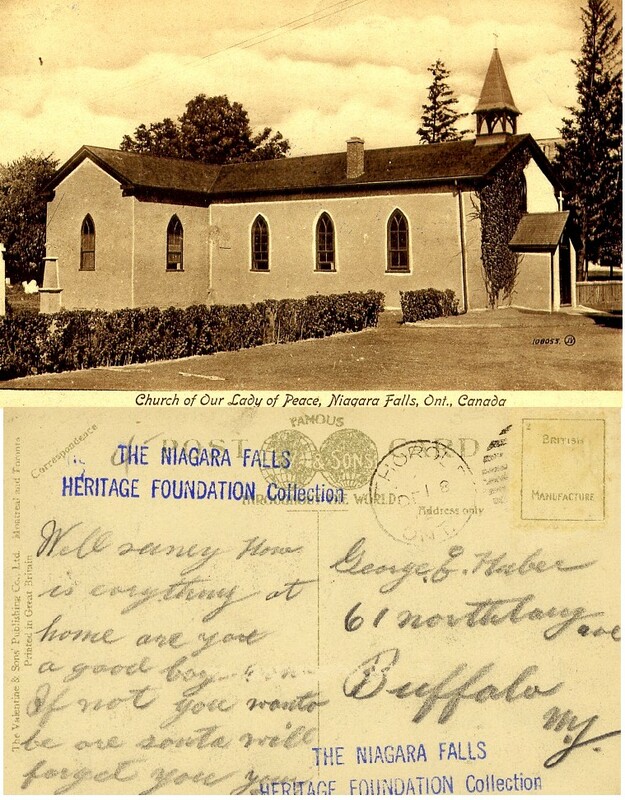 108053. JV
Church of Our Lady of Peace, Niagara Falls, Ont., Canada
Correspondence
FAMOUS
POST CARD
& SONS
THROUGHOUT THE WORLD
Address only
THE NIAGARA FALLS
HERITAGE FOUNDATION Collection
ONT
BRITISH
MANUFACTURE
The Valentine & Sons' Publishing Co., Ltd. Montreal and Toronto
Printed in Great Britain
Well How
is evrything at
home are you
a good boy
If not you wanto
be are santa will
forget you
George E. Huber
61 northlang ave
Buffalo
NY.
THE NIAGARA FALLS
HERITAGE FOUNDATION Collection